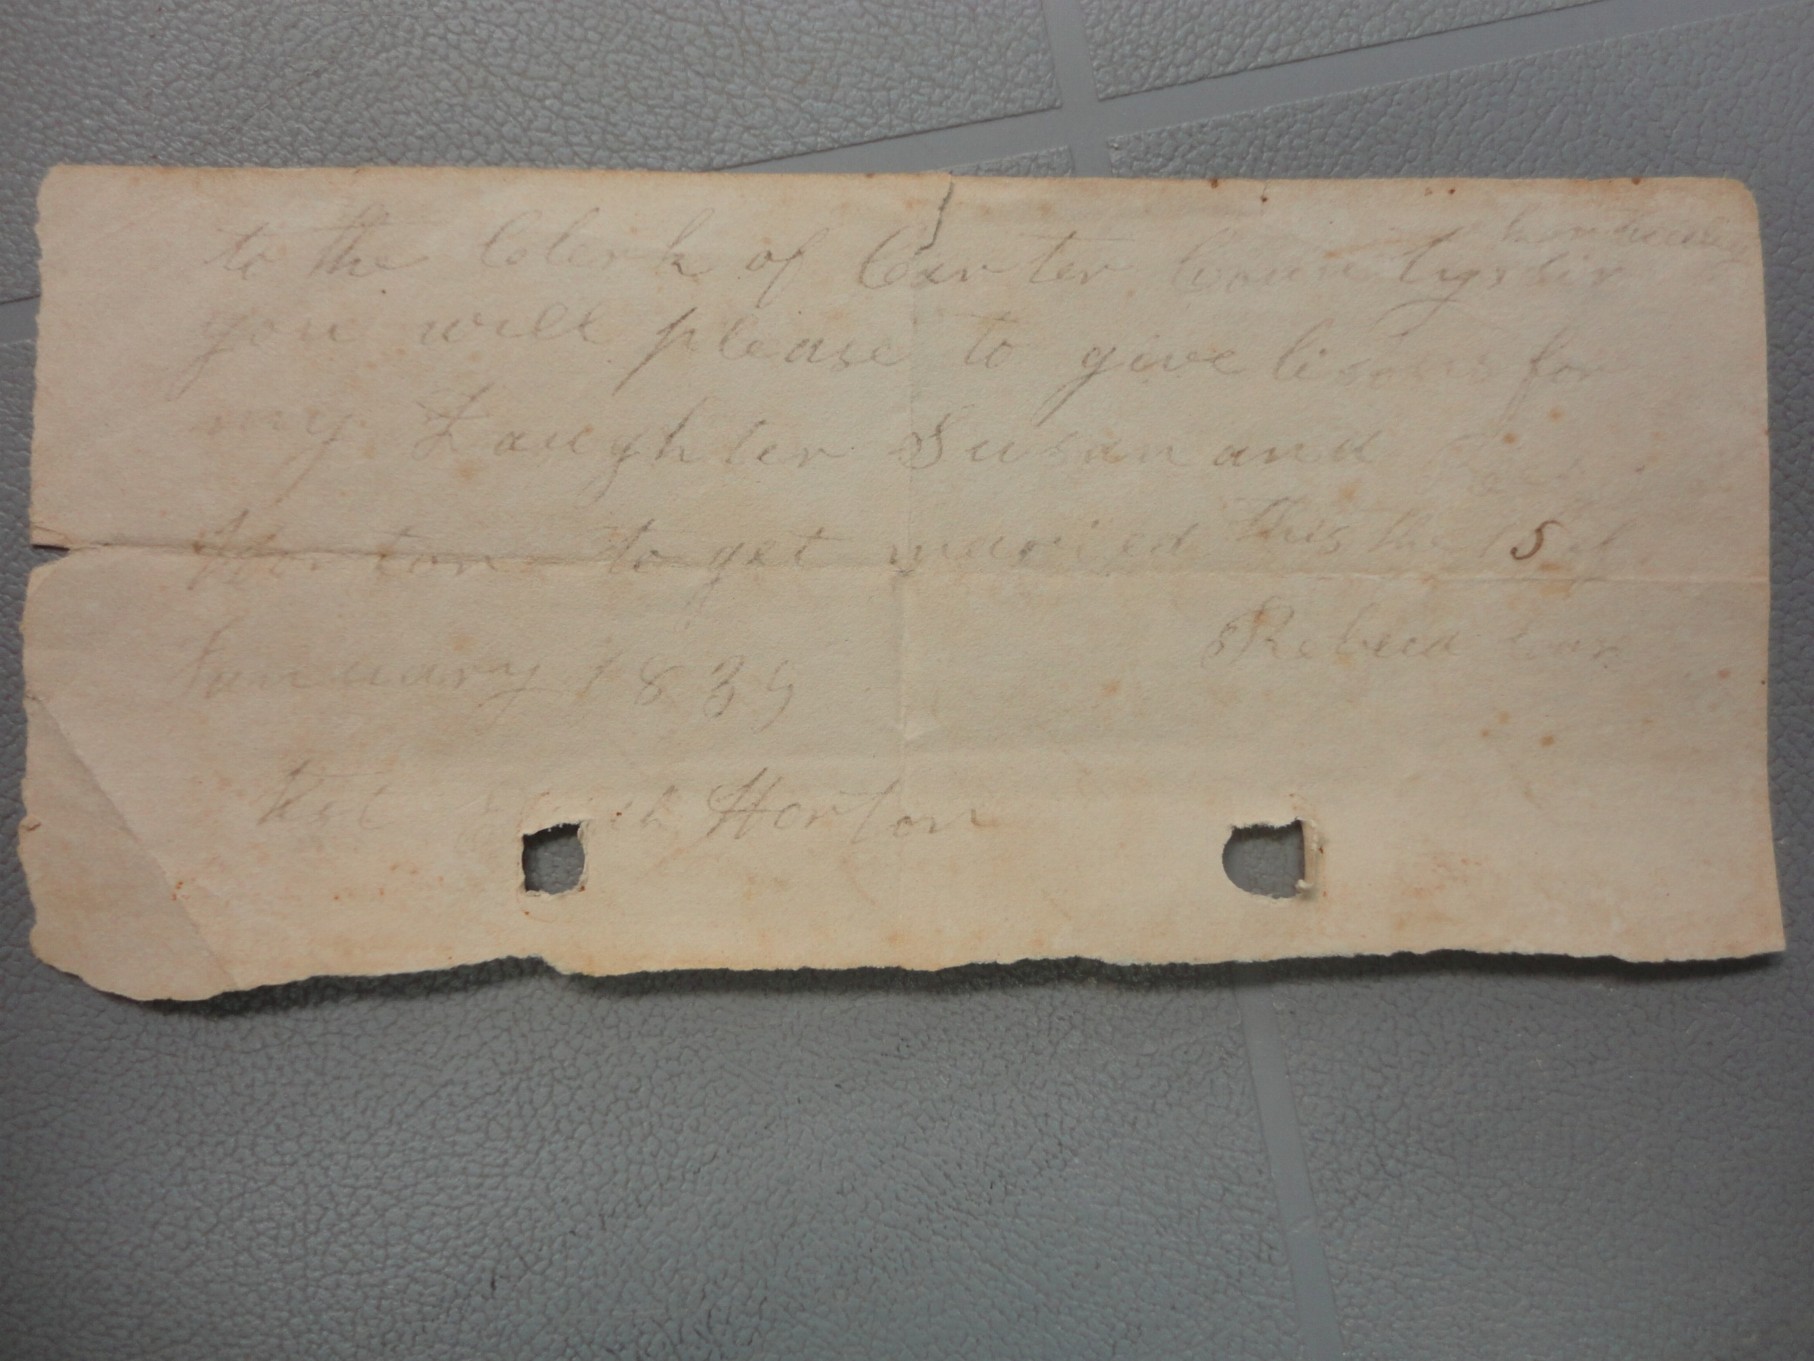 to the Clerk of Carter County Sir
you will please to give lisons for
my Daughter Susan and
Horton to get maried this the 15 of
January 1839 Rebeca
Horton